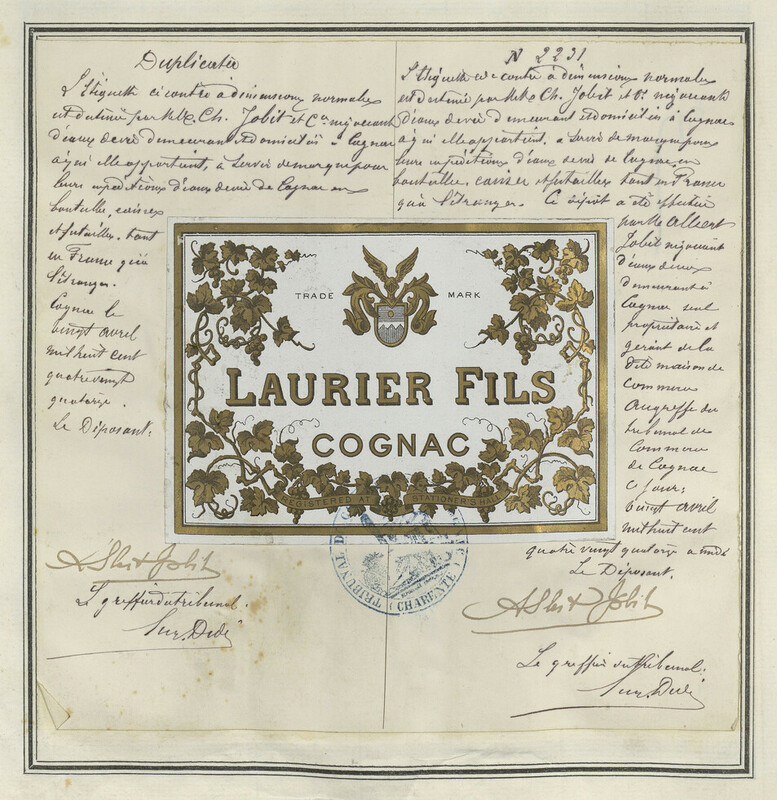 Duplicata
L'étiquette ci contre à dimensions normales
est destinée par MM. Ch. Jobit et Cie négociants
d'eaux de vie demeurant et domiciliés à Cognac
à qui elle appartient, à servir de marque pour
leurs expéditions d'eaux de vie de Cognac en
bouteilles, caisses
et futailles, tant
en France qu'à
l'étranger.
Cognac le
vingt avril
mil huit cent
quatre vingt
quatorze.
Le Déposant.
Albert Jobit
Le greffier du tribunal.
N 2231
L'étiquette ci contre à dimensions normales
est destinée par MM. Ch. Jobit et Cie négociants
d'eaux de vie demeurant et domiciliés à Cognac
à qui elle appartient, à servir de marque pour
leurs expéditions d'eaux de vie de Cognac en
bouteilles, caisses et futailles tant en France
qu'à l'étranger. Ce dépôt a été effectué
par M. Albert
Jobit négociant
d'eaux de vie
demeurant à
Cognac seul
propriétaire et
gérant de la
dite maison de
commerce
au greffe du
tribunal de
Commerce
de Cognac
ce jour:
vingt avril
mil huit cent
quatre vingt quatorze à midi
Le Déposant.
Albert Jobit
Le greffier du tribunal.
TRADE MARK
LAURIER FILS
COGNAC
REGISTERED AT STATIONER'S HALL
TRIBUNAL DE
(CHARENTE)